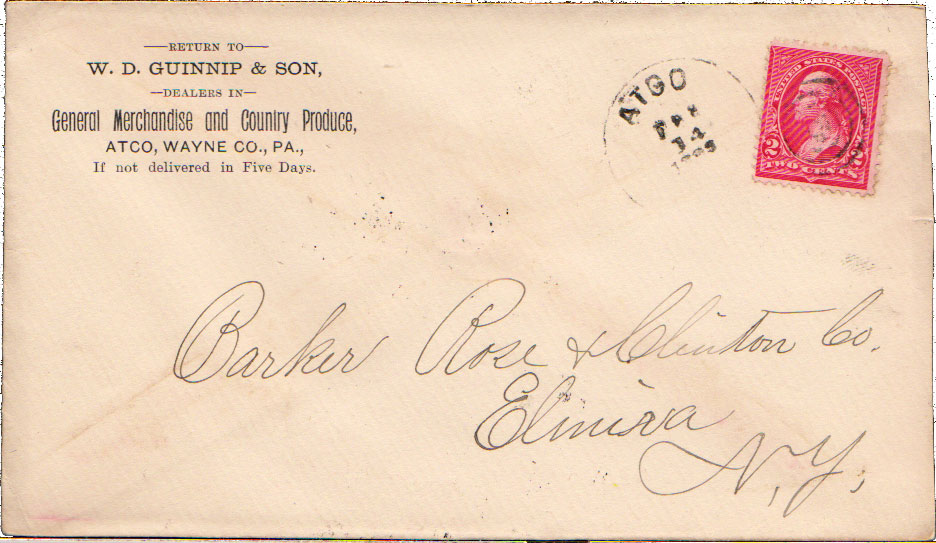 RETURN TO
W. D. GUINNIP & SON,
DEALERS IN
General Merchandise and Country Produce,
ATCO, WAYNE CO., PA.,
If not delivered in Five Days.
ATCO
14
UNITED STATES POSTAGE
2 2
TWO CENTS
Barker Rose & Clinton Co.
Elmira
N.Y.